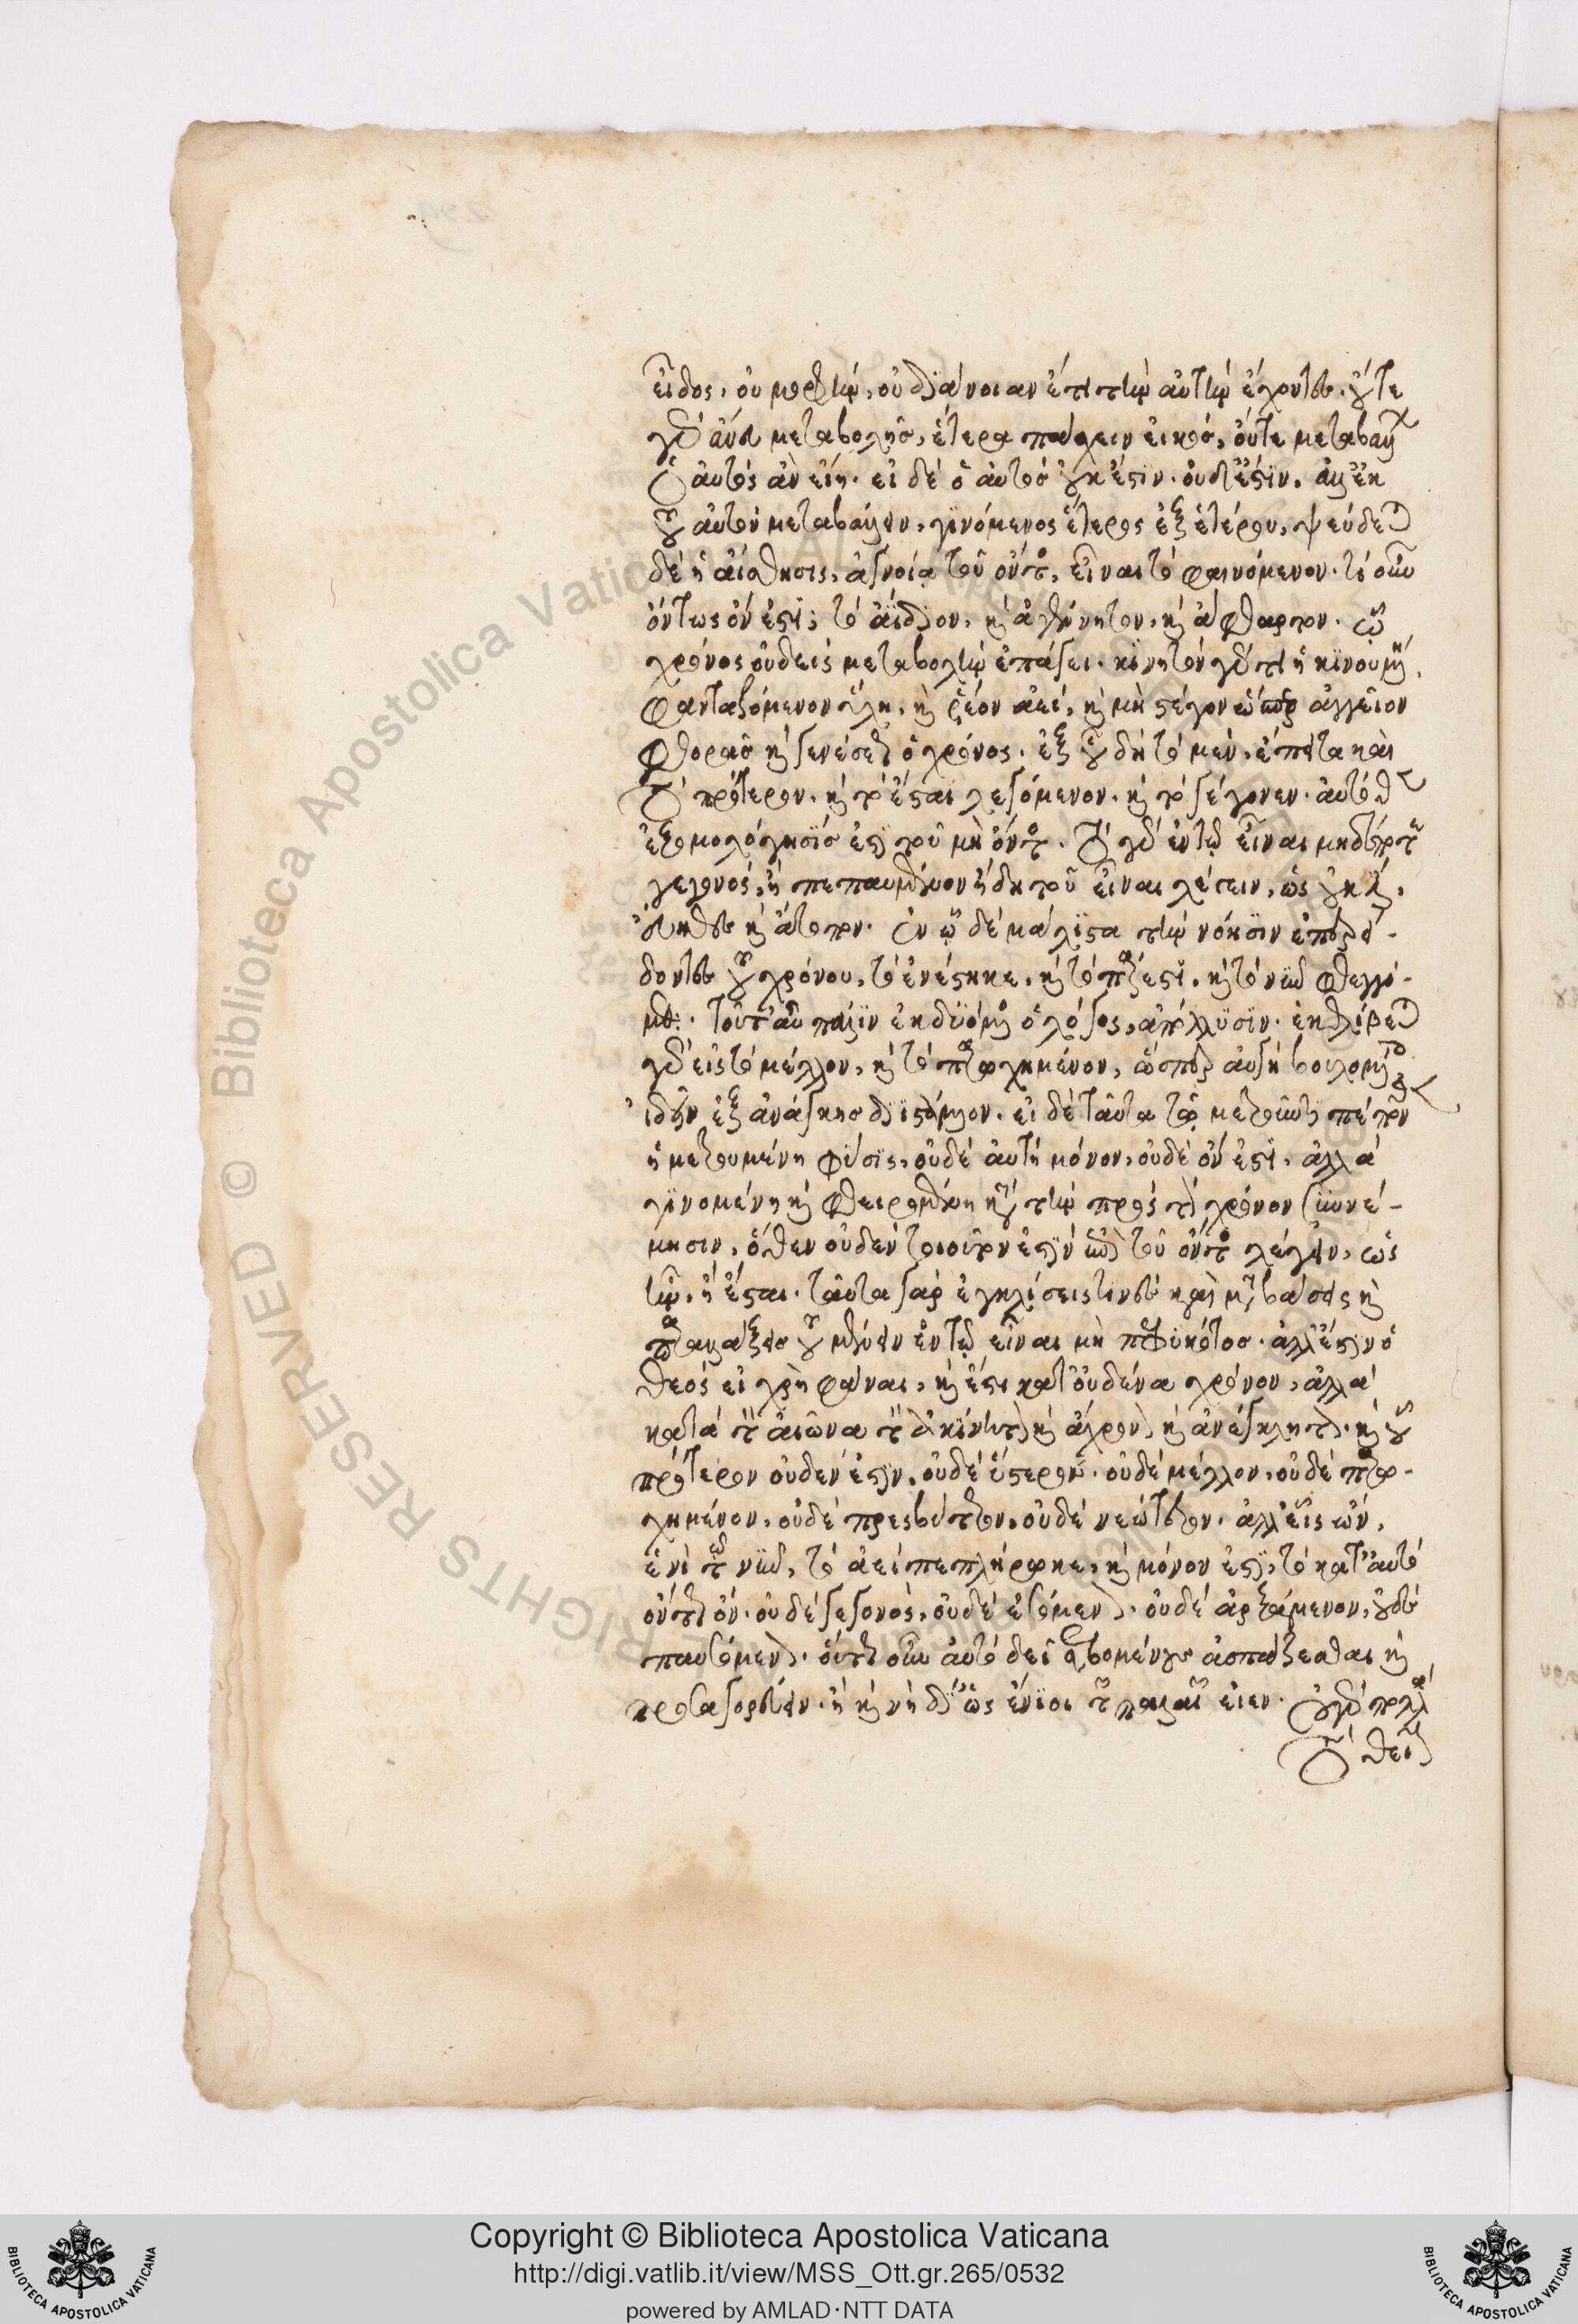 εἶδος, οὐ μορφὴν, οὐ διάνοιαν ἔτι τὴν αὐτὴν ἔχοντες. οὔτε
γὰρ ἄνευ μεταβολῆς, ἕτερα πάσχειν εἰκός, οὔτε μεταβάλλων
ὁ αὐτός ἂν εἴη. εἰ δὲ ὁ αὐτὸς οὐκ ἔστιν. οὐδ' ἔστιν. ἀλλ' ἐκ
τοῦ αὐτοῦ μεταβάλλειν, γινόμενος ἕτερος ἐξ ἑτέρου, ψεύδεται
δὲ ἡ αἴσθησις, ἀγνοίᾳ τοῦ ὄντος, εἶναι τὸ φαινόμενον. τί οὖν
ὄντως ὄν ἐστι; τὸ ἀΐδιον, καὶ ἀγένητον, καὶ ἄφθαρτον. ᾧ
χρόνος οὐδεὶς μεταβολὴν ἐπάγει. κινητὸν γάρ τι ἢ κινουμένῃ
φανταζόμενον ὕλῃ, καὶ ῥέον ἀεί, καὶ μὴ στέγον ὥσπερ ἀγγεῖον
φθορᾶς καὶ γενέσεως ὁ χρόνος. ἐξ οὗ δὴ τὸ μὲν, ἔπειτα καὶ
τὸ πρότερον. καὶ τὸ ἔσται λεγόμενον. καὶ τὸ γέγονεν. αὐτόθεν
ἐξομολόγησίς ἐστι τοῦ μὴ ὄντος. τὸ γὰρ ἐν τῷ εἶναι μηδέπω
γεγονός, ἢ πεπαυμένον ἤδη τοῦ εἶναι λέγειν, ὡς
εὔηθες καὶ ἄτοπον. ἐν ᾧ δὲ μάλιστα τὴν νόησιν
δοντες τοῦ χρόνου, τὸ ἐνέστηκε, καὶ τὸ πάρεστι, καὶ τὸ νῦν φθεγγό-
μεθα. τοῦτ' αὖ πάλιν ἐκδυόμενος ὁ λόγος, ἀπόλλυσιν. ἐκθλίβεται
γὰρ εἰς τὸ μέλλον, καὶ τὸ παρῳχημένον, ὥσπερ αὐγὴ βουλομένοις
ἰδεῖν ἐξ ἀνάγκης διιστάμενον. εἰ δὲ ταῦτα τῷ μετροῦντι πέπονθεν
ἡ μετρουμένη φύσις, οὐδὲ αὐτὴ μόνον, οὐδὲ ὄν ἐστι. ἀλλὰ
γινομένη καὶ φθειρομένη κατὰ τὴν πρὸς τὸν χρόνον συννέ-
μησιν. ὅθεν οὐδὲν τοιοῦτόν ἐστιν ἐπὶ τοῦ ὄντος λέγειν, ὡς
ἦν, ἢ ἔσται. ταῦτα γὰρ ἐγκλίσεις τινές καὶ μεταβάσεις καὶ
παραλλάξεις τοῦ μένειν ἐν τῷ εἶναι μὴ πεφυκότος. ἀλλ' ἔστιν ὁ
θεός εἰ χρὴ φάναι, καὶ ἔστι κατ' οὐδένα χρόνον, ἀλλὰ
κατὰ τὸν αἰῶνα τὸν ἀκίνητον καὶ ἄχρονον καὶ ἀνέγκλητον. καὶ οὗ
πρότερον οὐδέν ἐστιν. οὐδὲ ὕστερον. οὐδὲ μέλλον, οὐδὲ παρῳ-
χημένον, οὐδὲ πρεσβύτερον, οὐδὲ νεώτερον. ἀλλ' εἷς ὢν,
ἑνὶ τῷ νῦν, τὸ ἀεὶ πεπλήρωκε, καὶ μόνον ἐστὶ, τὸ κατ' αὐτὸ
ὄντως ὄν. οὐδὲ γεγονός, οὐδὲ ἐσόμενον. οὐδὲ ἀρξάμενον, οὐδὲ
παυσόμενον. οὕτως οὖν αὐτὸ δεῖ σεβομένους ἀσπάζεσθαι καὶ
προσαγορεύειν. ἢ καὶ νὴ δί' ὡς ἔνιοι τῶν παλαιῶν εἶεν. οὐ γὰρ πολλὰ
τὸ θεῖον